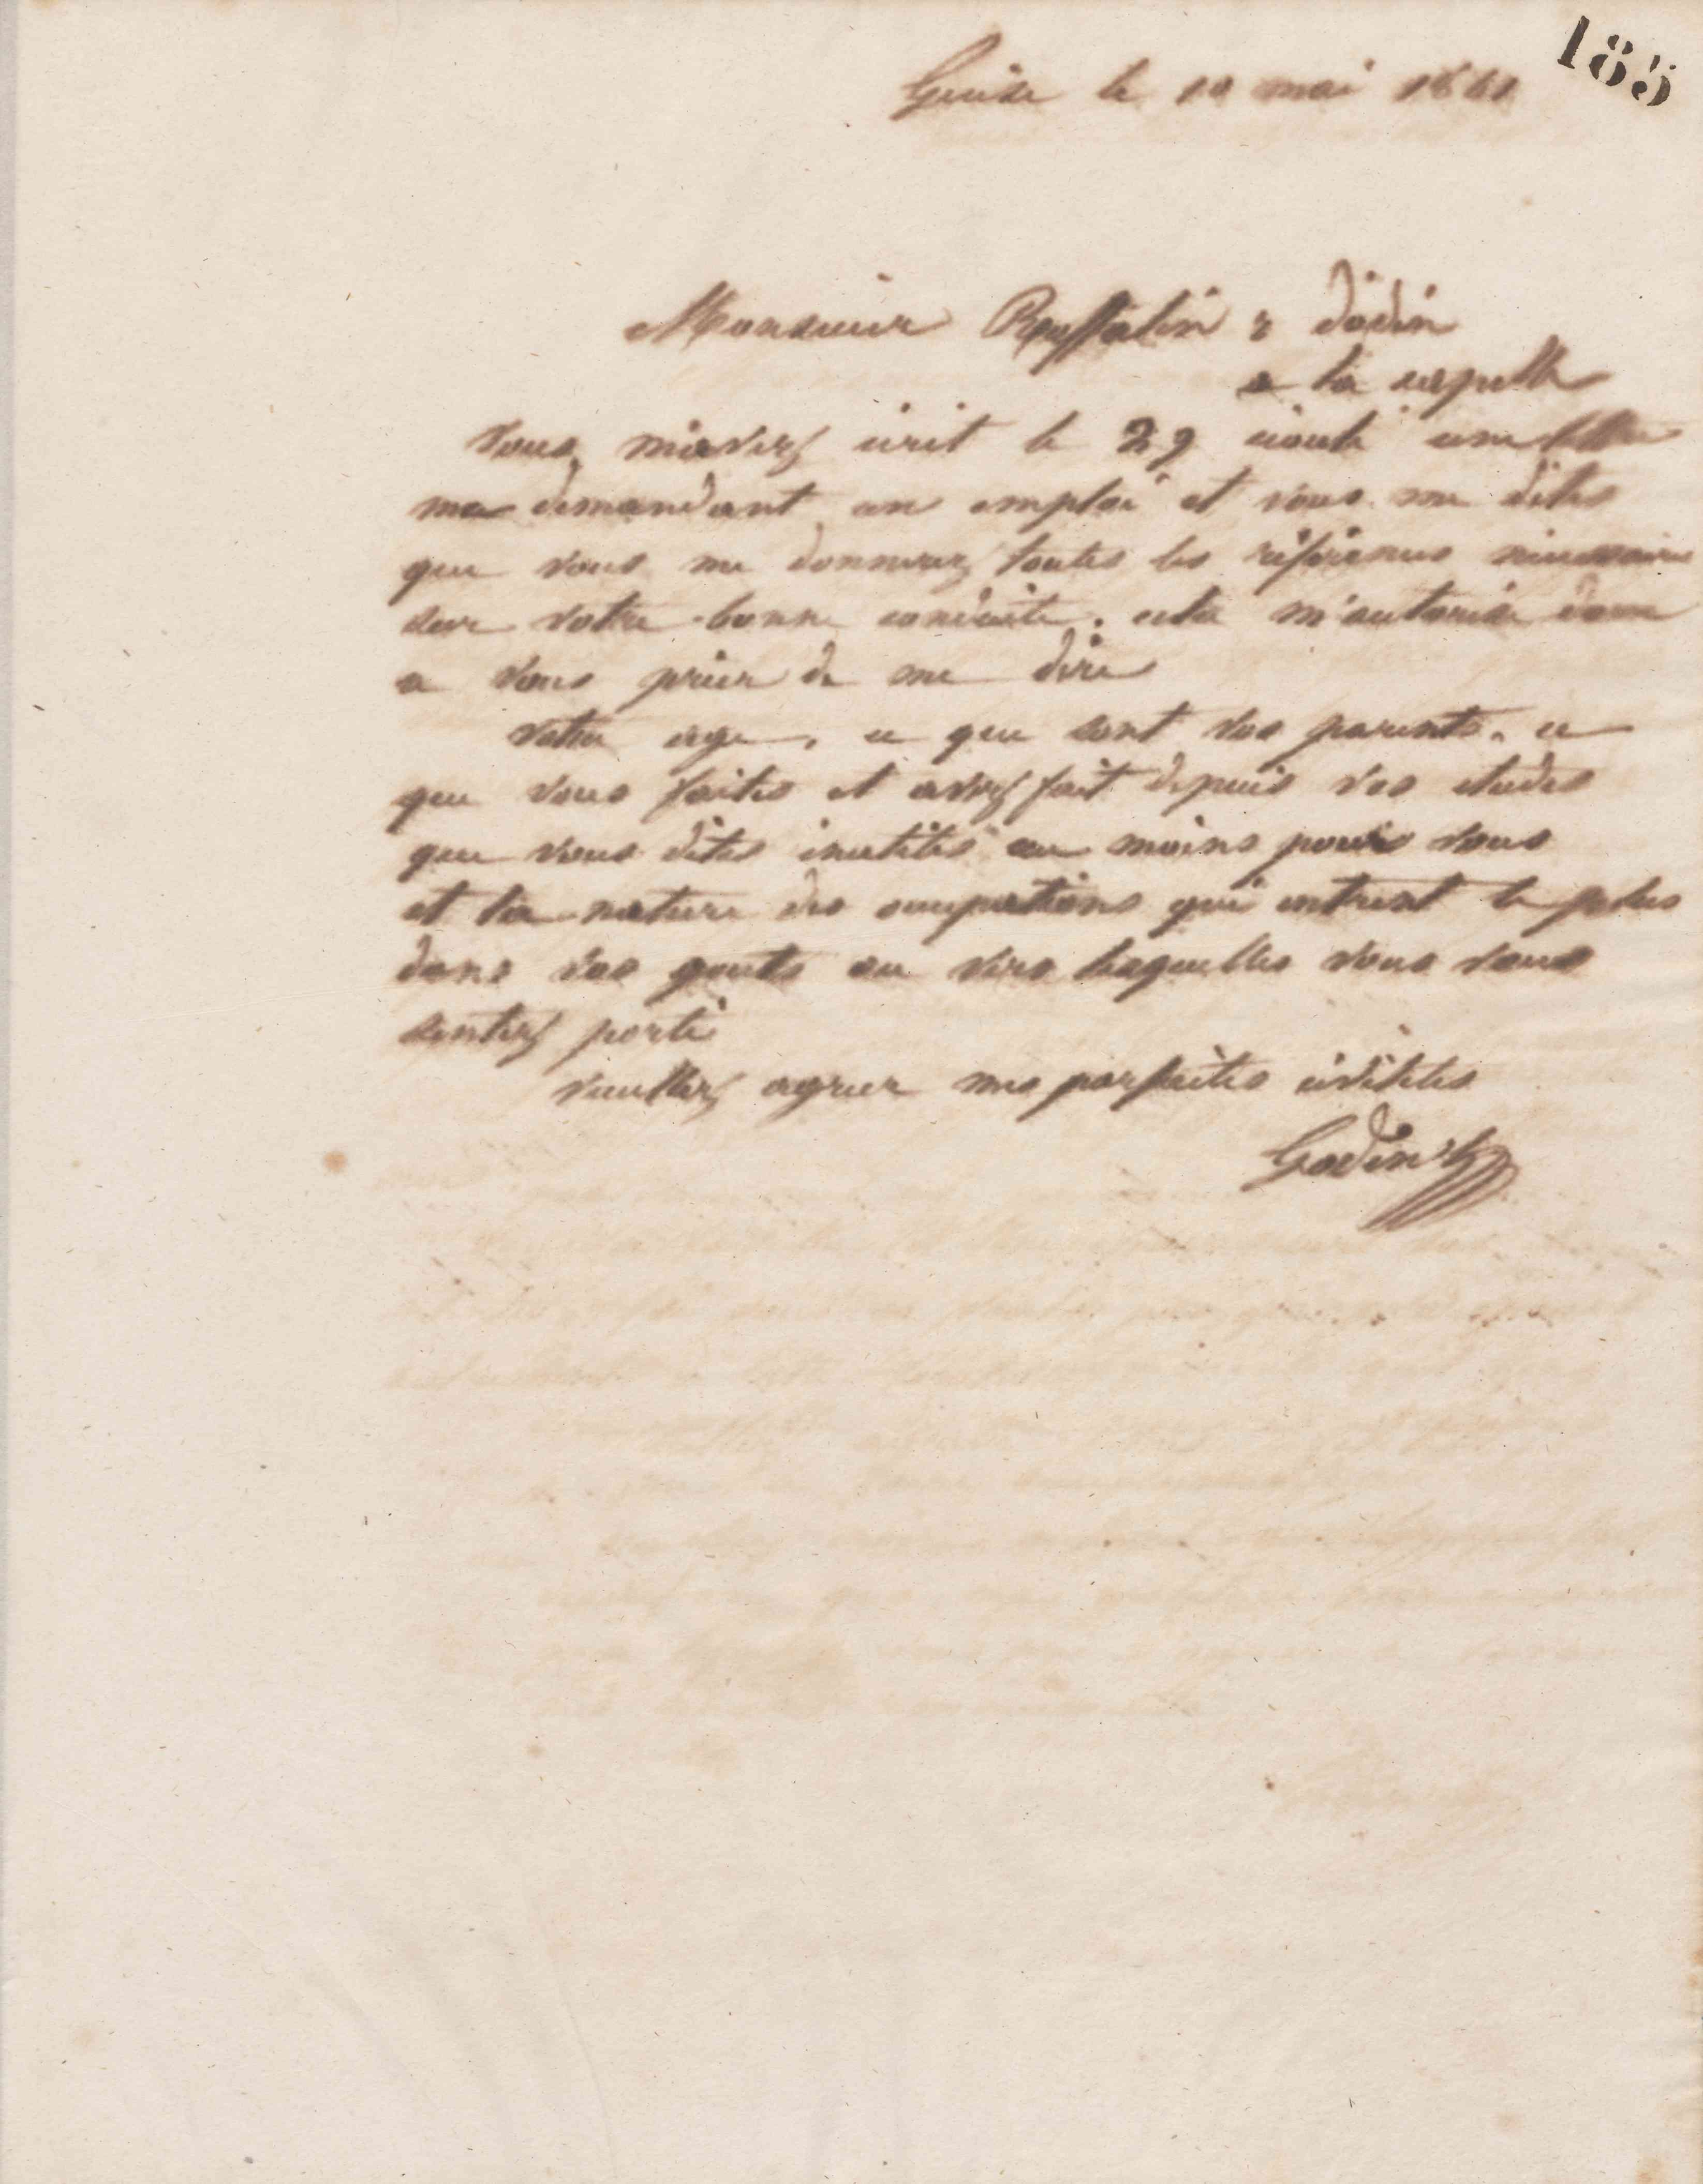 185
Guise le 10 mai 1861
Monsieur
a la capelle
Vous m'avez écrit le 29 une lettre
me demandant un emploi et vous me dites
que vous me donnerez toutes les références nécessaires
sur votre bonne conduite. cela m'autorise donc
a vous prier de me dire
votre age, ce que sont vos parents, ce
que vous faites et avez fait depuis vos etudes
que vous dites inutiles au moins pour vous
et la nature des occupations qui entrent le plus
dans vos gouts ou vers lesquelles vous vous
sentez porté
veuillez agréer mes parfaites civilités
Godin